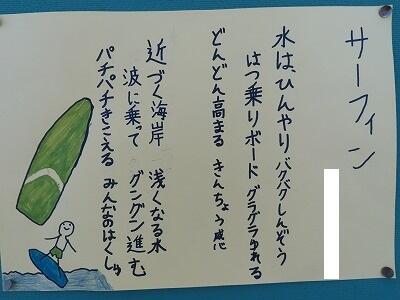 サーフィン
水は、ひんやり バクバクしんぞう
はつ乗りボード グラグラゆれる
どんどん高まる きんちょう感
近づく海岸 浅くなる水
波に乗って グングン進む
パチパチきこえる みんなのはくしゅ